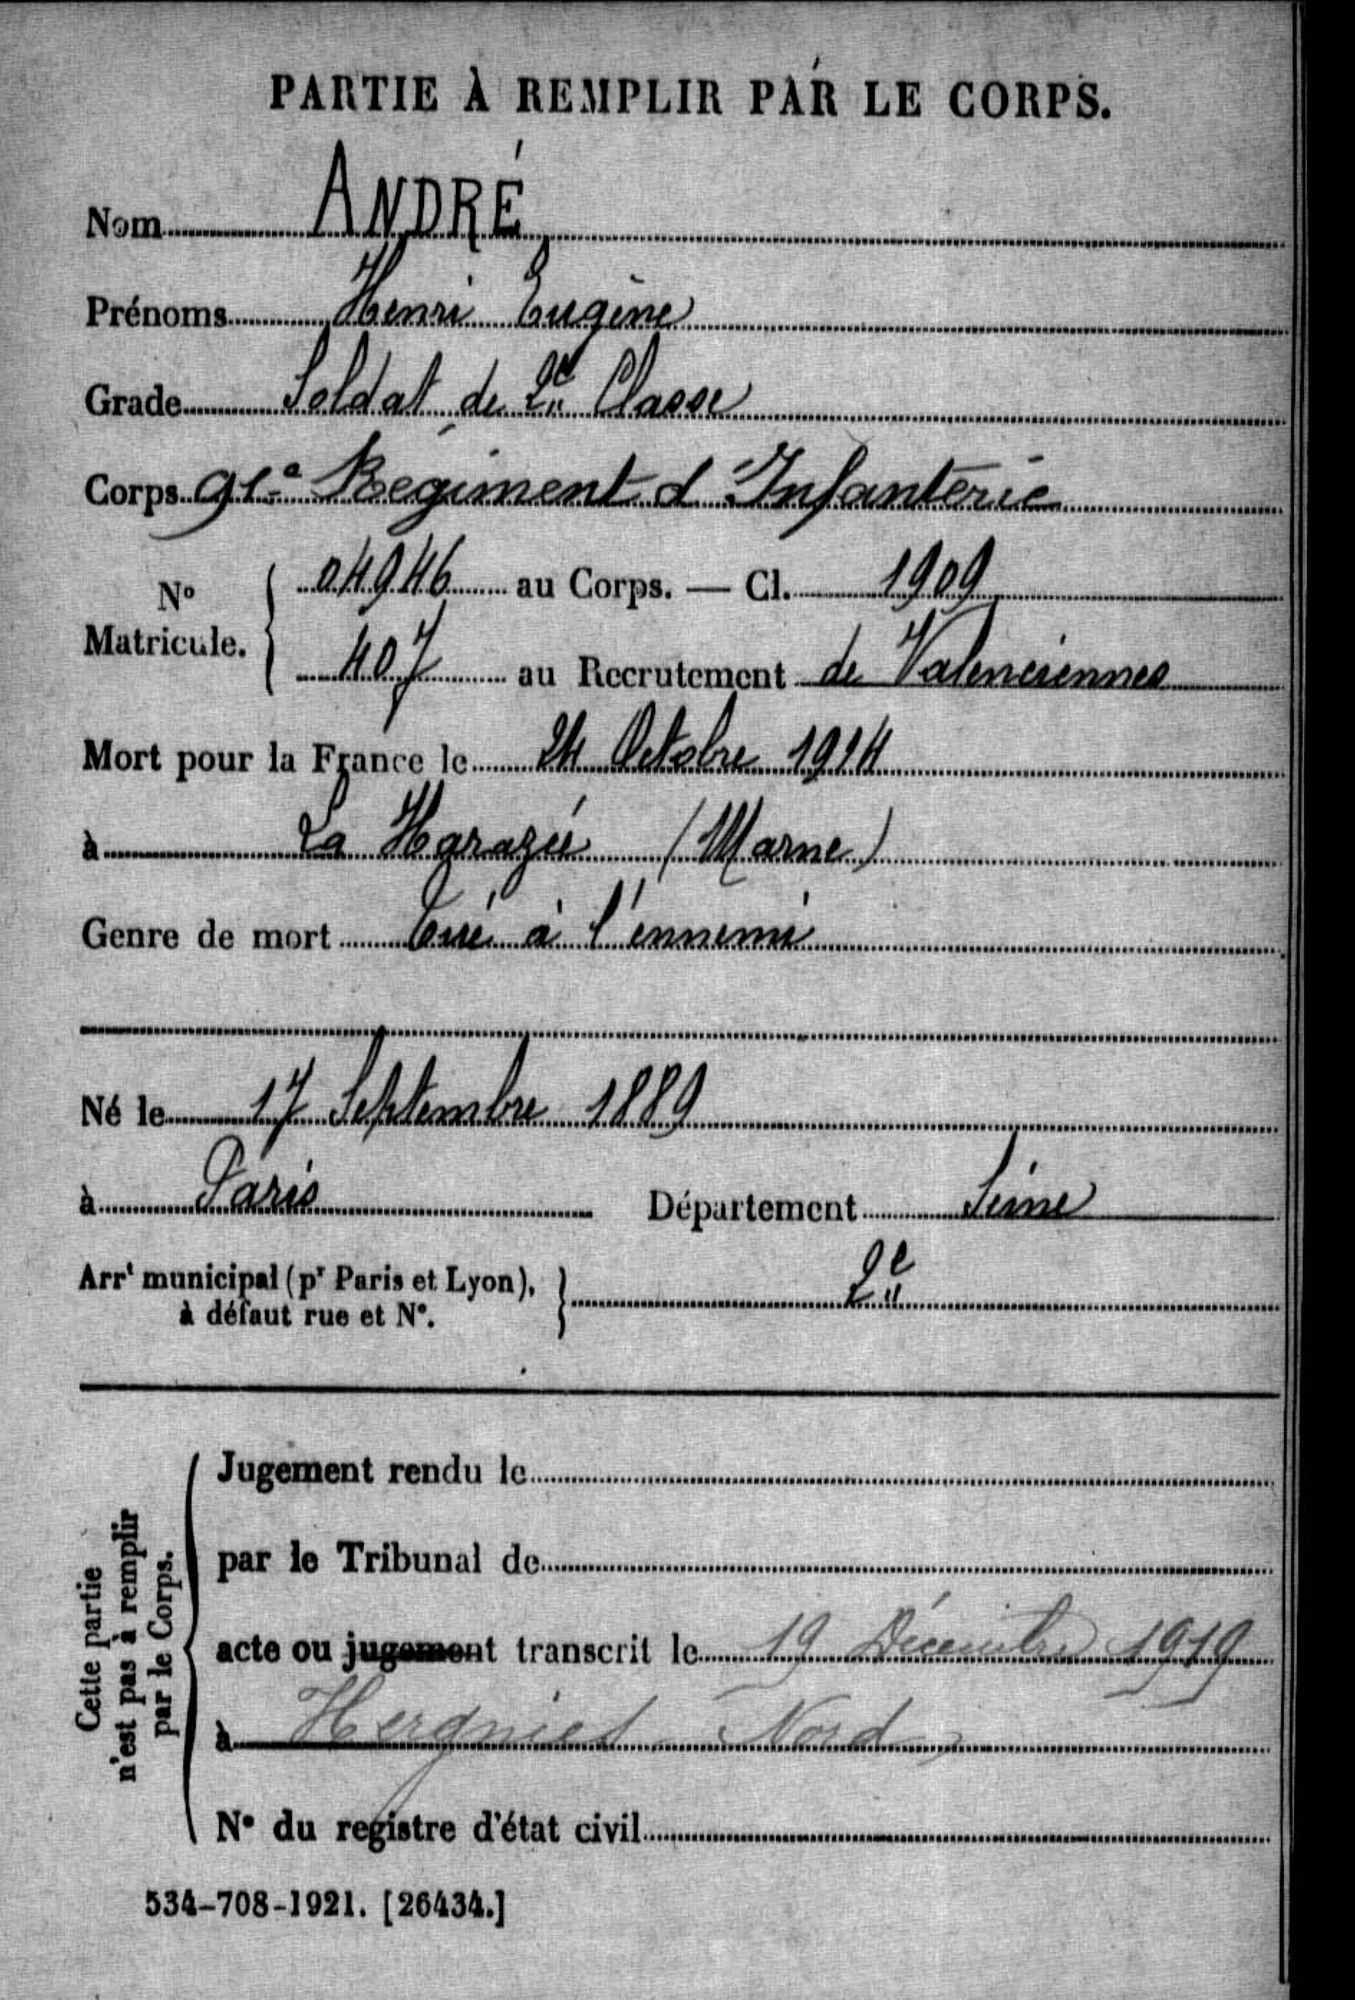 PARTIE À REMPLIR PAR LE CORPS.
Nom ANDRÉ
Prénoms Henri Eugène
Grade Soldat de 2e Classe
Corps 91e Régiment d'Infanterie
No Matricule. { 04946 au Corps. — Cl. 1909
407 au Recrutement de Valenciennes
Mort pour la France le 24 Octobre 1914
à La Harazée (Marne)
Genre de mort Tué à l'ennemi
Né le 17 Septembre 1889
à Paris Département Seine
Arrt municipal (pr Paris et Lyon), à défaut rue et No. } 2e
Cette partie n'est pas à remplir par le Corps.
Jugement rendu le
par le Tribunal de
acte ou jugement transcrit le 19 Décembre 1919
à Hergnies Nord
No du registre d'état civil
534-708-1921. [26434.]